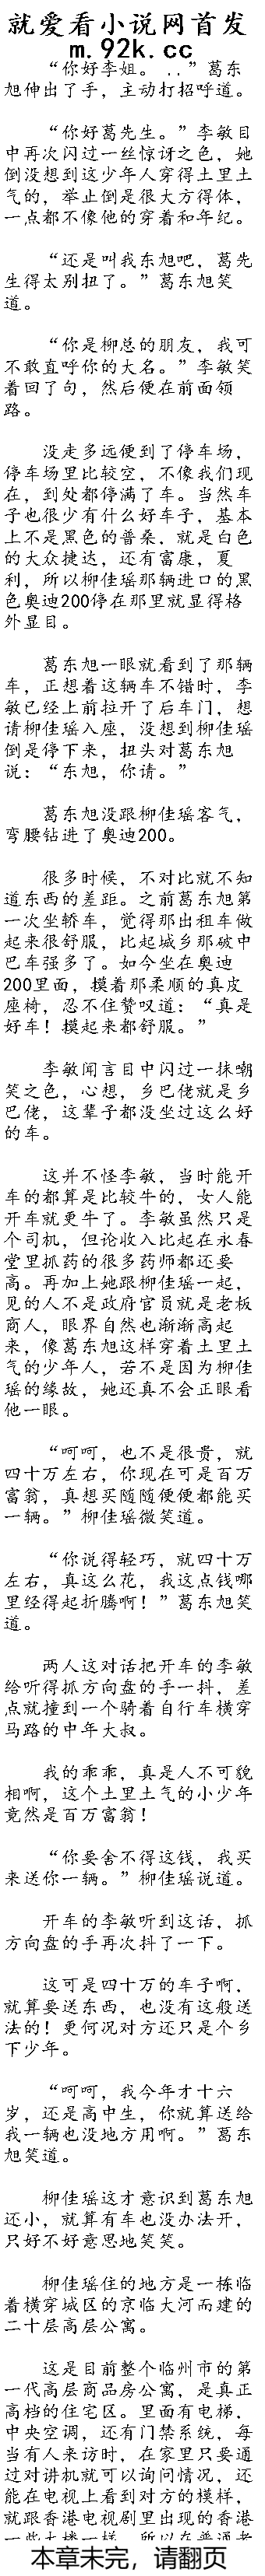 就爱看小说网首发
m.92k.cc
“你好李姐。 ..”葛东
旭伸出了手，主动打招呼道。
“你好葛先生。”李敏目
中再次闪过一丝惊讶之色，她
倒没想到这少年人穿得土里土
气的，举止倒是很大方得体，
一点都不像他的穿着和年纪。
“还是叫我东旭吧，葛先
生得太别扭了。”葛东旭笑
道。
“你是柳总的朋友，我可
不敢直呼你的大名。”李敏笑
着回了句，然后便在前面领
路。
没走多远便到了停车场，
停车场里比较空，不像我们现
在，到处都停满了车。当然车
子也很少有什么好车子，基本
上不是黑色的普桑，就是白色
的大众捷达，还有富康，夏
利，所以柳佳瑶那辆进口的黑
色奥迪200停在那里就显得格
外显目。
葛东旭一眼就看到了那辆
车，正想着这辆车不错时，李
敏已经上前拉开了后车门，想
请柳佳瑶入座，没想到柳佳瑶
倒是停下来，扭头对葛东旭
说：“东旭，你请。”
葛东旭没跟柳佳瑶客气，
弯腰钻进了奥迪200。
很多时候，不对比就不知
道东西的差距。之前葛东旭第
一次坐轿车，觉得那出租车做
起来很舒服，比起城乡那破中
巴车强多了。如今坐在奥迪
200里面，摸着那柔顺的真皮
座椅，忍不住赞叹道：“真是
好车！摸起来都舒服。”
李敏闻言目中闪过一抹嘲
笑之色，心想，乡巴佬就是乡
巴佬，这辈子都没坐过这么好
的车。
这并不怪李敏，当时能开
车的都算是比较牛的，女人能
开车就更牛了。李敏虽然只是
个司机，但论收入比起在永春
堂里抓药的很多药师都还要
高。再加上她跟柳佳瑶一起，
见的人不是政府官员就是老板
商人，眼界自然也渐渐高起
来，像葛东旭这样穿着土里土
气的少年人，若不是因为柳佳
瑶的缘故，她还真不会正眼看
他一眼。
“呵呵，也不是很贵，就
四十万左右，你现在可是百万
富翁，真想买随随便便都能买
一辆。”柳佳瑶微笑道。
“你说得轻巧，就四十万
左右，真这么花，我这点钱哪
里经得起折腾啊！”葛东旭笑
道。
两人这对话把开车的李敏
给听得抓方向盘的手一抖，差
点就撞到一个骑着自行车横穿
马路的中年大叔。
我的乖乖，真是人不可貌
相啊，这个土里土气的小少年
竟然是百万富翁！
“你要舍不得这钱，我买
来送你一辆。”柳佳瑶说道。
开车的李敏听到这话，抓
方向盘的手再次抖了一下。
这可是四十万的车子啊，
就算要送东西，也没有这般送
法的！更何况对方还只是个乡
下少年。
“呵呵，我今年才十六
岁，还是高中生，你就算送给
我一辆也没地方用啊。”葛东
旭笑道。
柳佳瑶这才意识到葛东旭
还小，就算有车也没办法开，
只好不好意思地笑笑。
柳佳瑶住的地方是一栋临
着横穿城区的京临大河而建的
二十层高层公寓。
这是目前整个临州市的第
一代高层商品房公寓，是真正
高档的住宅区。里面有电梯，
中央空调，还有门禁系统，每
当有人来访时，在家里只要通
过对讲机就可以询问情况，还
能在电视上看到对方的模样，
就跟香港电视剧里出现的香港
一些大楼一样，所以在普通老
本章未完，请翻页